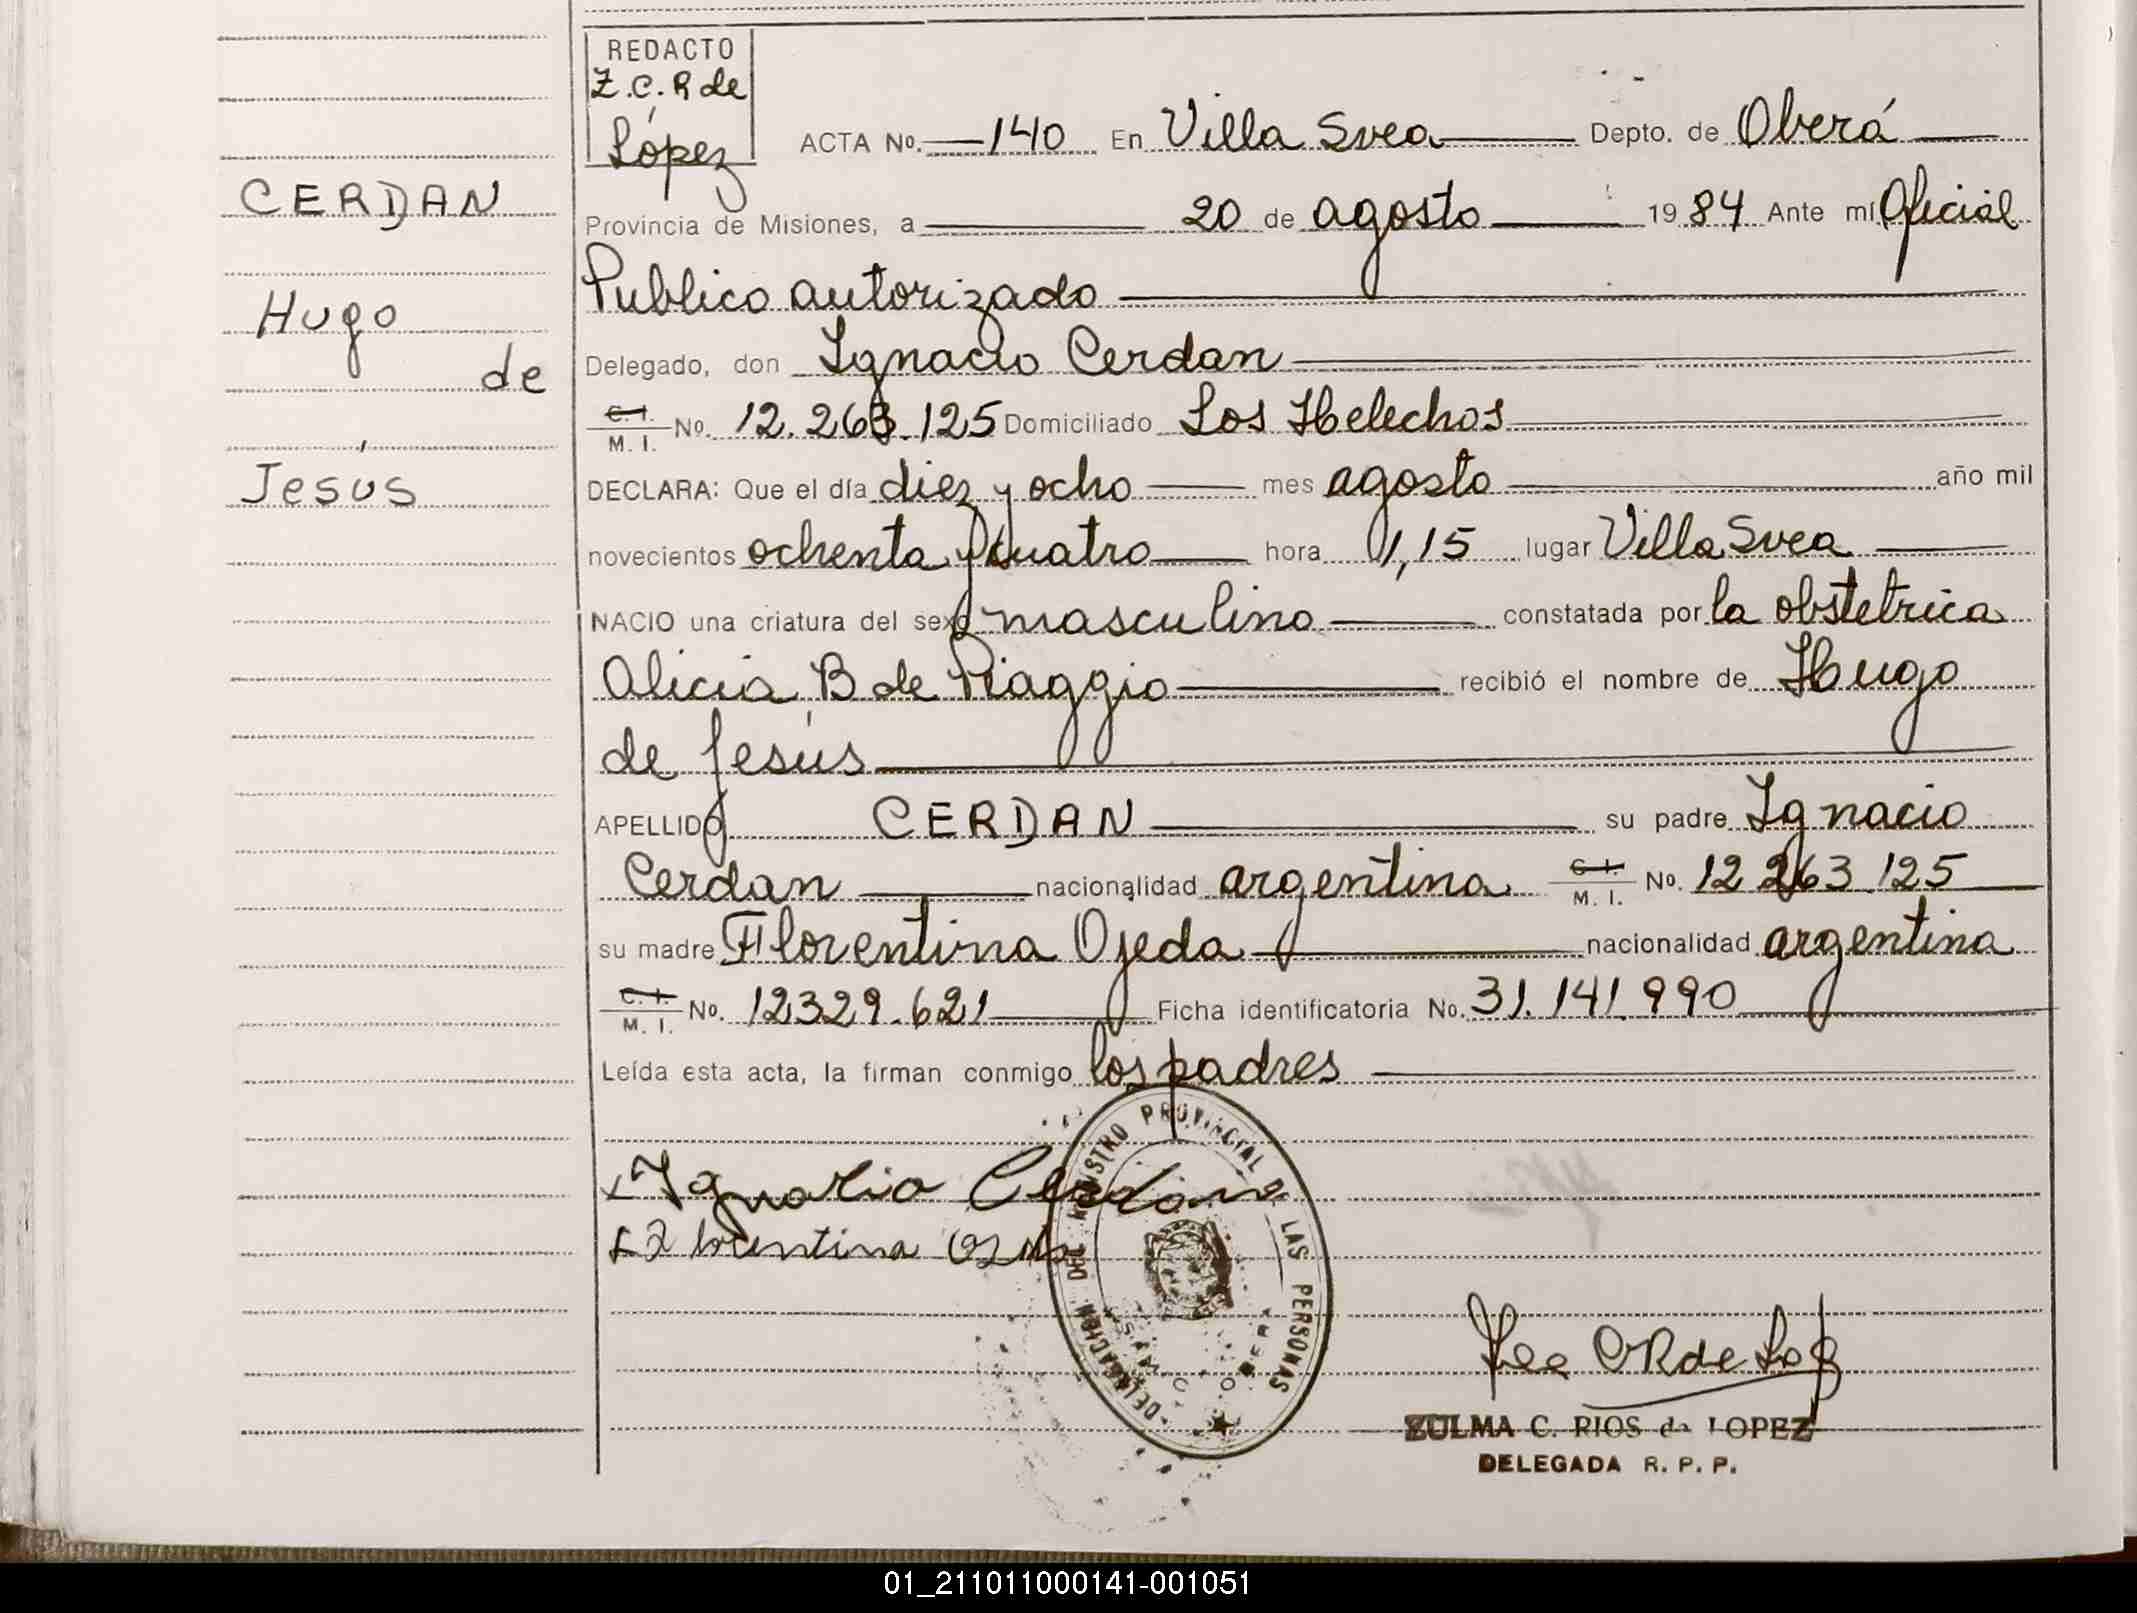 REDACTO
Z.C.R de
López
ACTA No. 140 En Villa Svea Depto. de Oberá
Provincia de Misiones, a 20 de agosto 1984 Ante mí Oficial
Publico autorizado
Delegado, don Ignacio Cerdan
C. I. / M. I. No. 12.263.125 Domiciliado Los Helechos
DECLARA: Que el día diez y ocho mes agosto año mil
novecientos ochenta y cuatro hora 1,15 lugar Villa Svea
NACIO una criatura del sexo masculino constatada por la obstetrica
Alicia B de Piaggio recibió el nombre de Hugo
de Jesús
APELLIDO CERDAN su padre Ignacio
Cerdan nacionalidad argentina C. I. / M. I. No. 12 263.125
su madre Florentina Ojeda nacionalidad argentina
C. I. / M. I. No. 12329.621 Ficha identificatoria No. 31.141.990
Leída esta acta, la firman conmigo los padres
CERDAN
Hugo
de
Jesús
Ignacio Cerdan
Florentina
DELEGACION DEL REGISTRO PROVINCIAL DE LAS PERSONAS
ZULMA C. RIOS de LOPEZ
DELEGADA R. P. P.
01_211011000141-001051